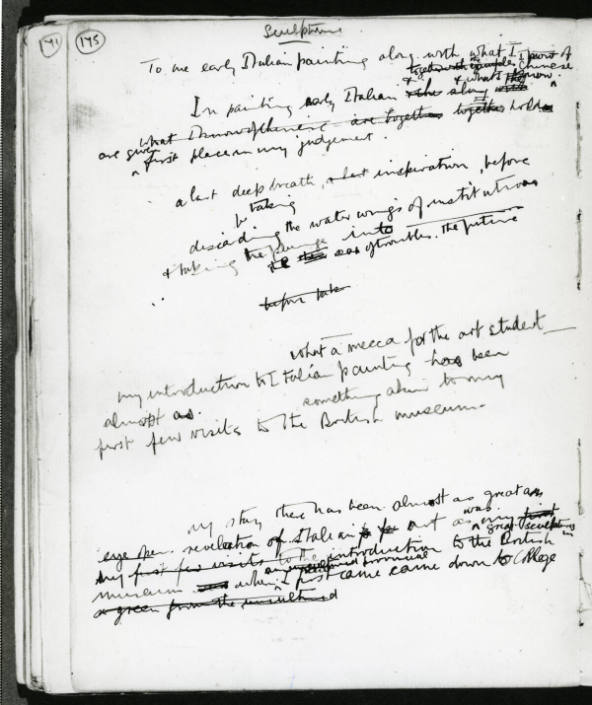 141 145
Sculpture
To me early Italian painting along with what I know of
together with & what Chinese
In painting early Italian & the along with
what I know of Chinese are together together holds
are given first place in my judgement.
a last deep breath, a last inspiration, before
taking
discarding the water wings of institutions
& taking the plunge into
sea of troubles, the future
before take
what a mecca for the art student —
my introduction to Italian painting has been
almost as. something akin to my
first few visits to the British museum.
my stay there has been almost as great an
eye open revelation of Italian art as was my first
great sculpture in
my first few visits to the introduction to the British
an provincial
museum when I first came came down to College
a green from the uncultured